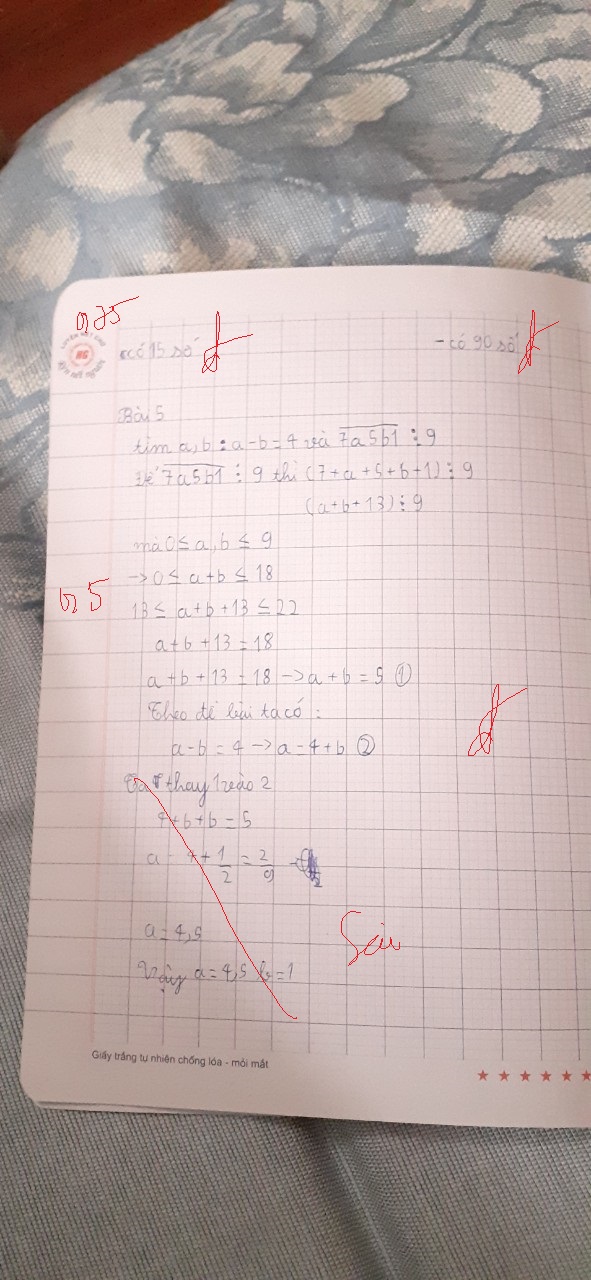 0,75
có 15 số đ
- có 90 số đ
Bài 5
tìm a,b : a-b=4 và 7a5b1 ⋮ 9
Để 7a5b1 ⋮ 9 thì (7+a+5+b+1) ⋮ 9
(a+b+13) ⋮ 9
mà 0 ≤ a,b ≤ 9
→ 0 ≤ a+b ≤ 18
0,5
13 ≤ a+b+13 ≤ 22
a+b+13=18
a+b+13=18 → a+b=5 ①
Theo đề bài ta có:
đ
a-b=4 → a=4+b ②
thay 1 vào 2
4+b+b=5
a 4+1/2 = 2/9
a=4,5
Sai
Vậy a=4,5 b=1
Giấy trắng tự nhiên chống lóa - mỏi mắt